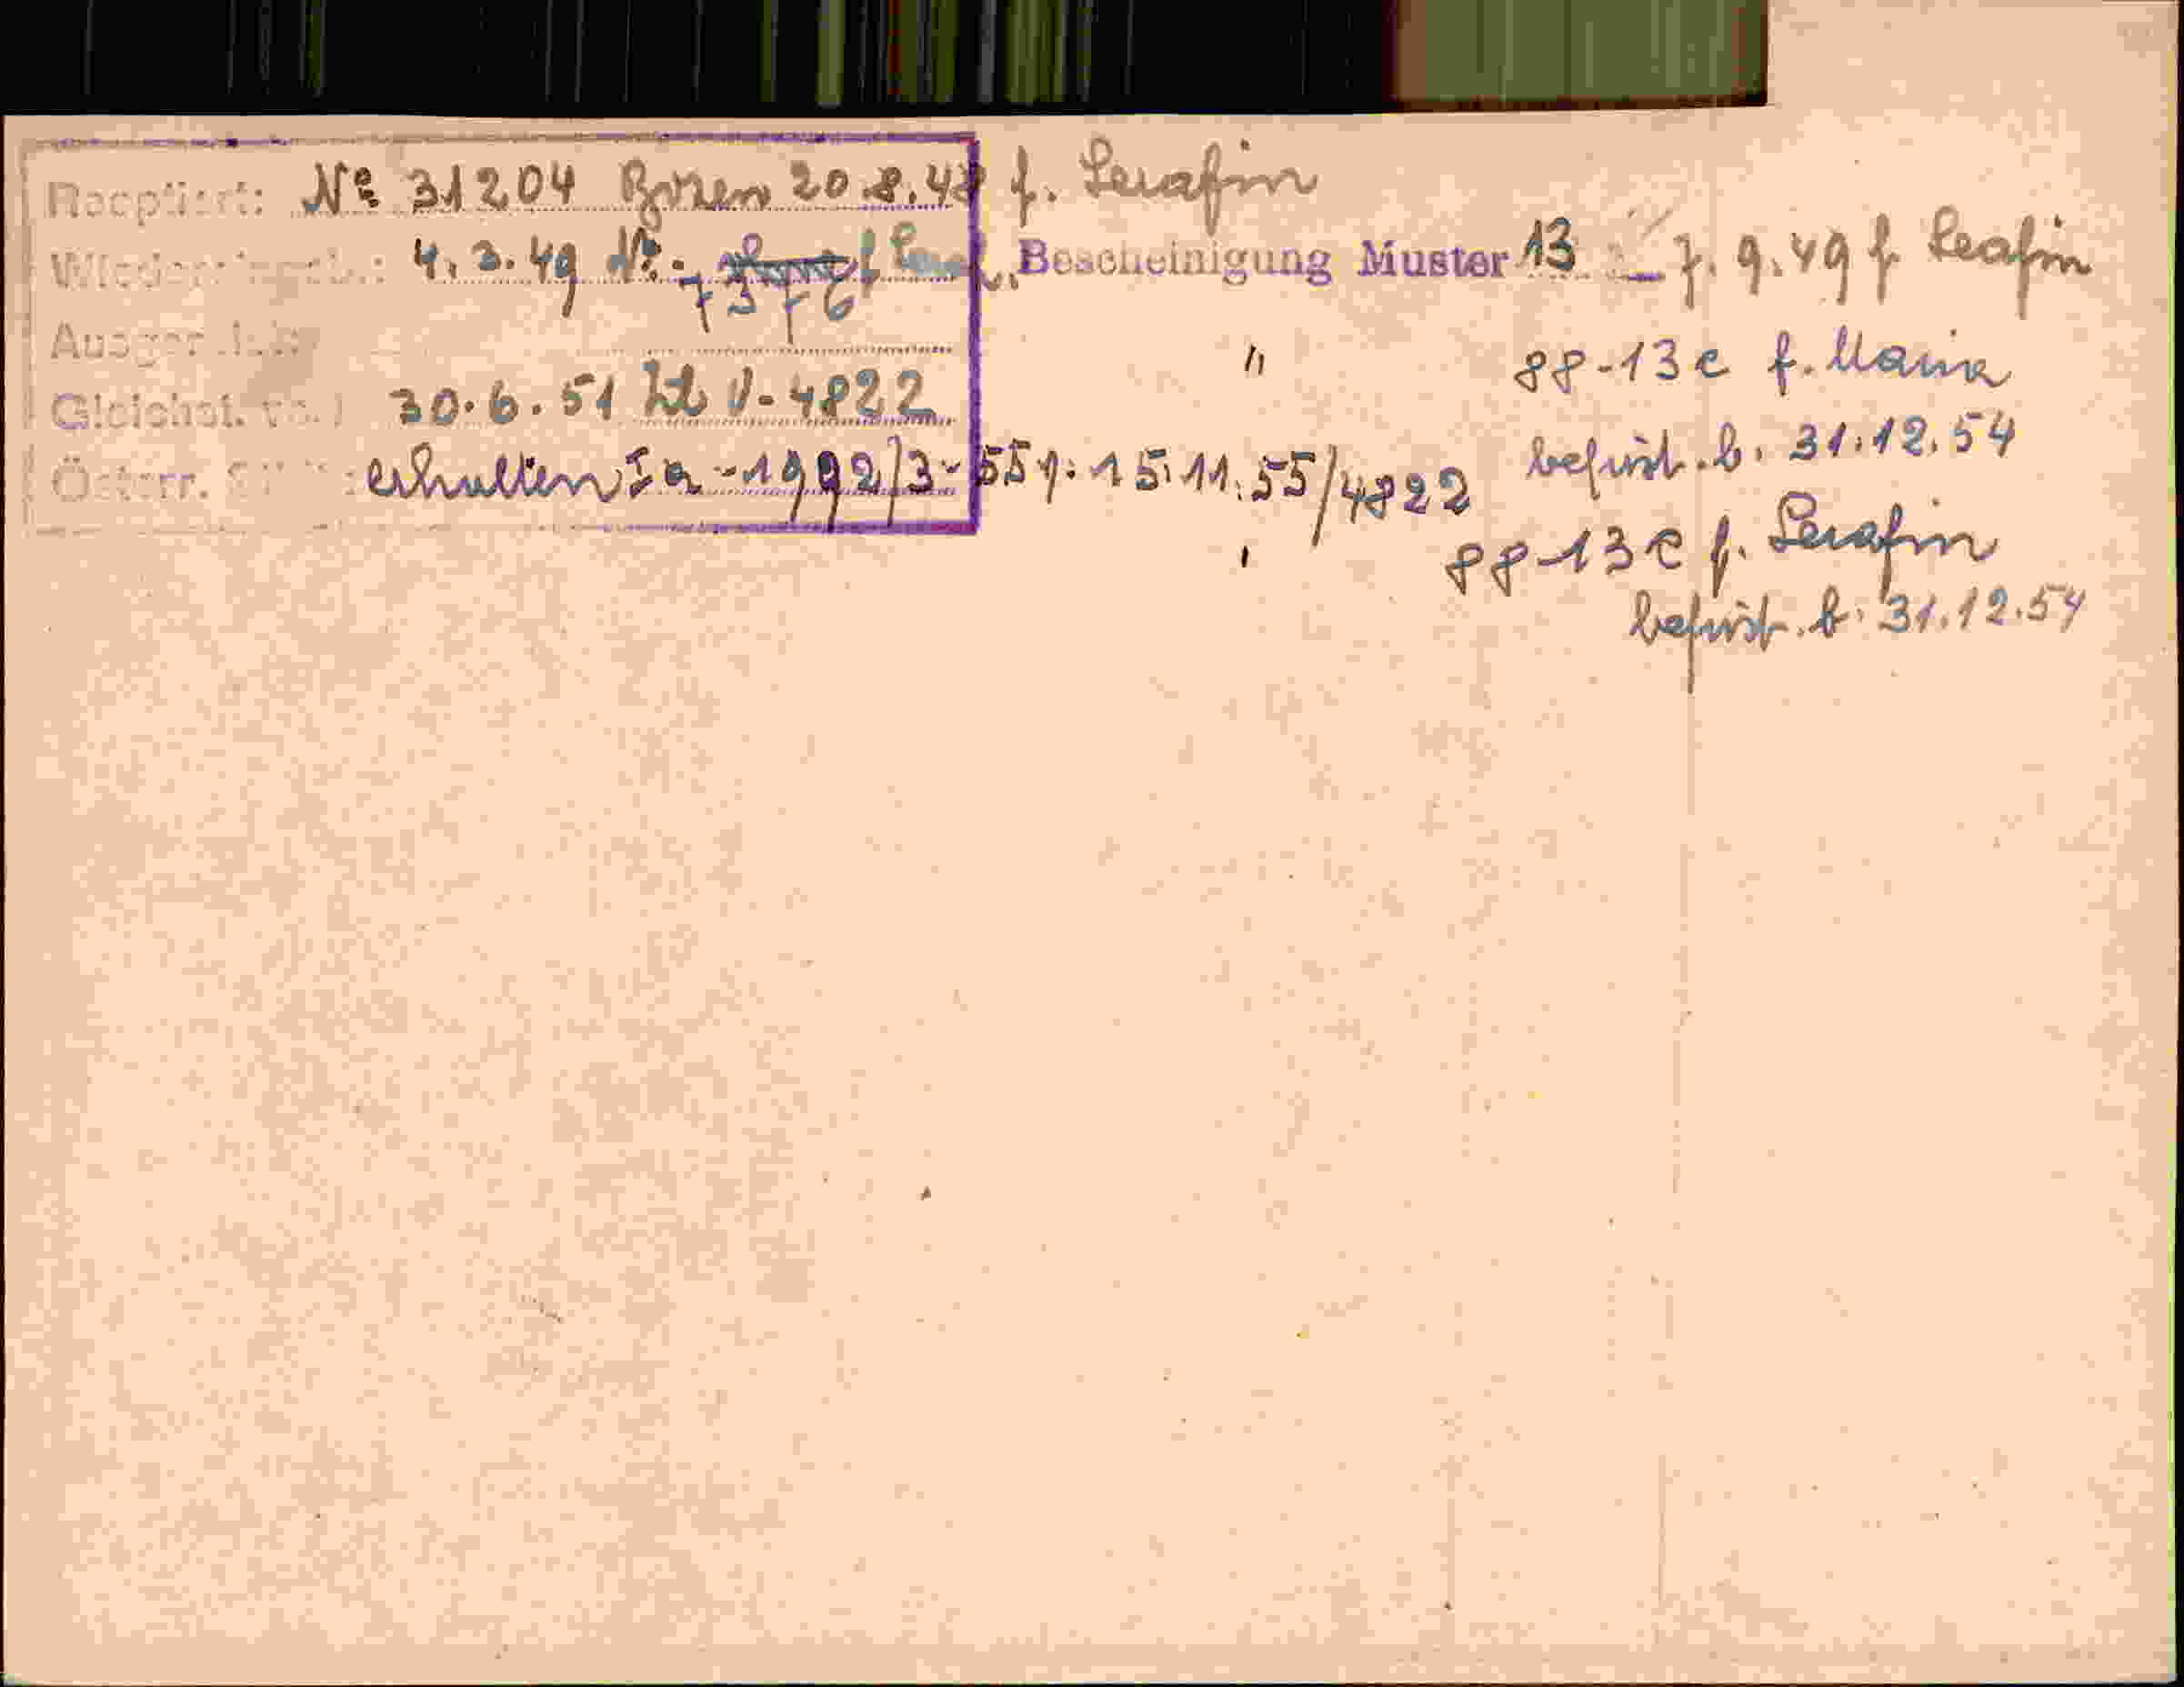 Reoptiert: No 31204 Bozen 20.8.48 f. Serafin
4.3.49 No. 7376 Bescheinigung Muster 13 7.9.49 f Serafin
" 88-13e f. Maria
Gleichst. 30.6.51 4822
befrist. b. 31.12.54
Österr. erhalten Ia-1992/3-55 v. 15.11.55/4822
' 88-13e f. Serafin
befrist. b. 31.12.54